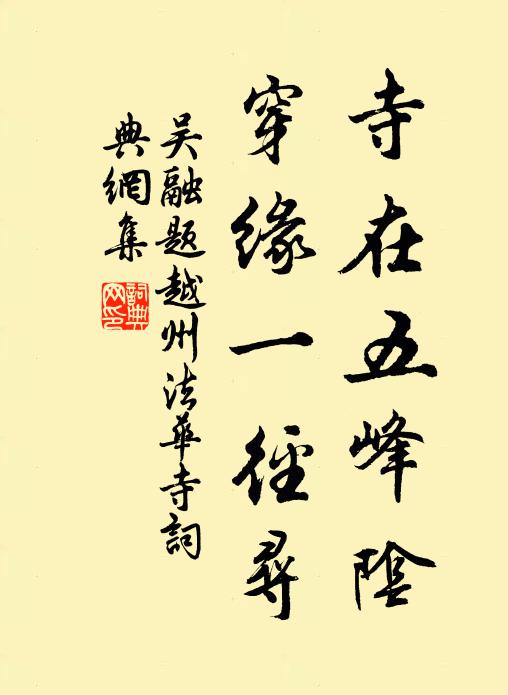 寺在五峰陰
穿緣一徑尋
吴融題越州法華寺詞
典網集
詞典
网印